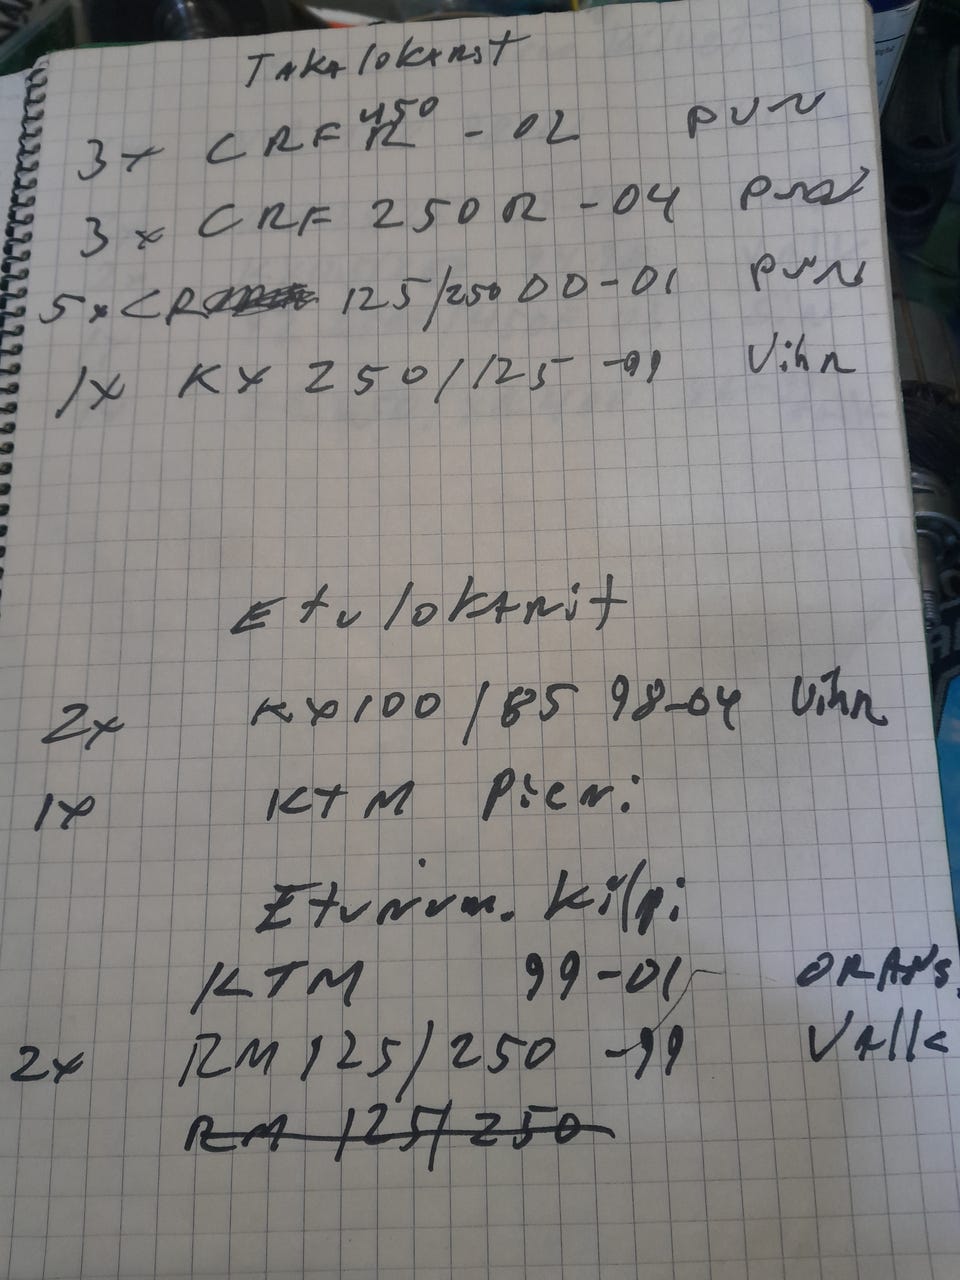 TAKAlOKARIT
3x CRF 450 R - 02 PUN
3x CRF 250 R - 04 PUN
5x CR 125/250 00-01 PUN
1x KX 250/125 -99 Vihr
Etulokarit
2x KX100/85 98-04 Vihr
1x KTM Pieni
Etunum. Kilpi
KTM 99-01 ORANS
2x RM 125/250 -99 VAlk
RM 125/250